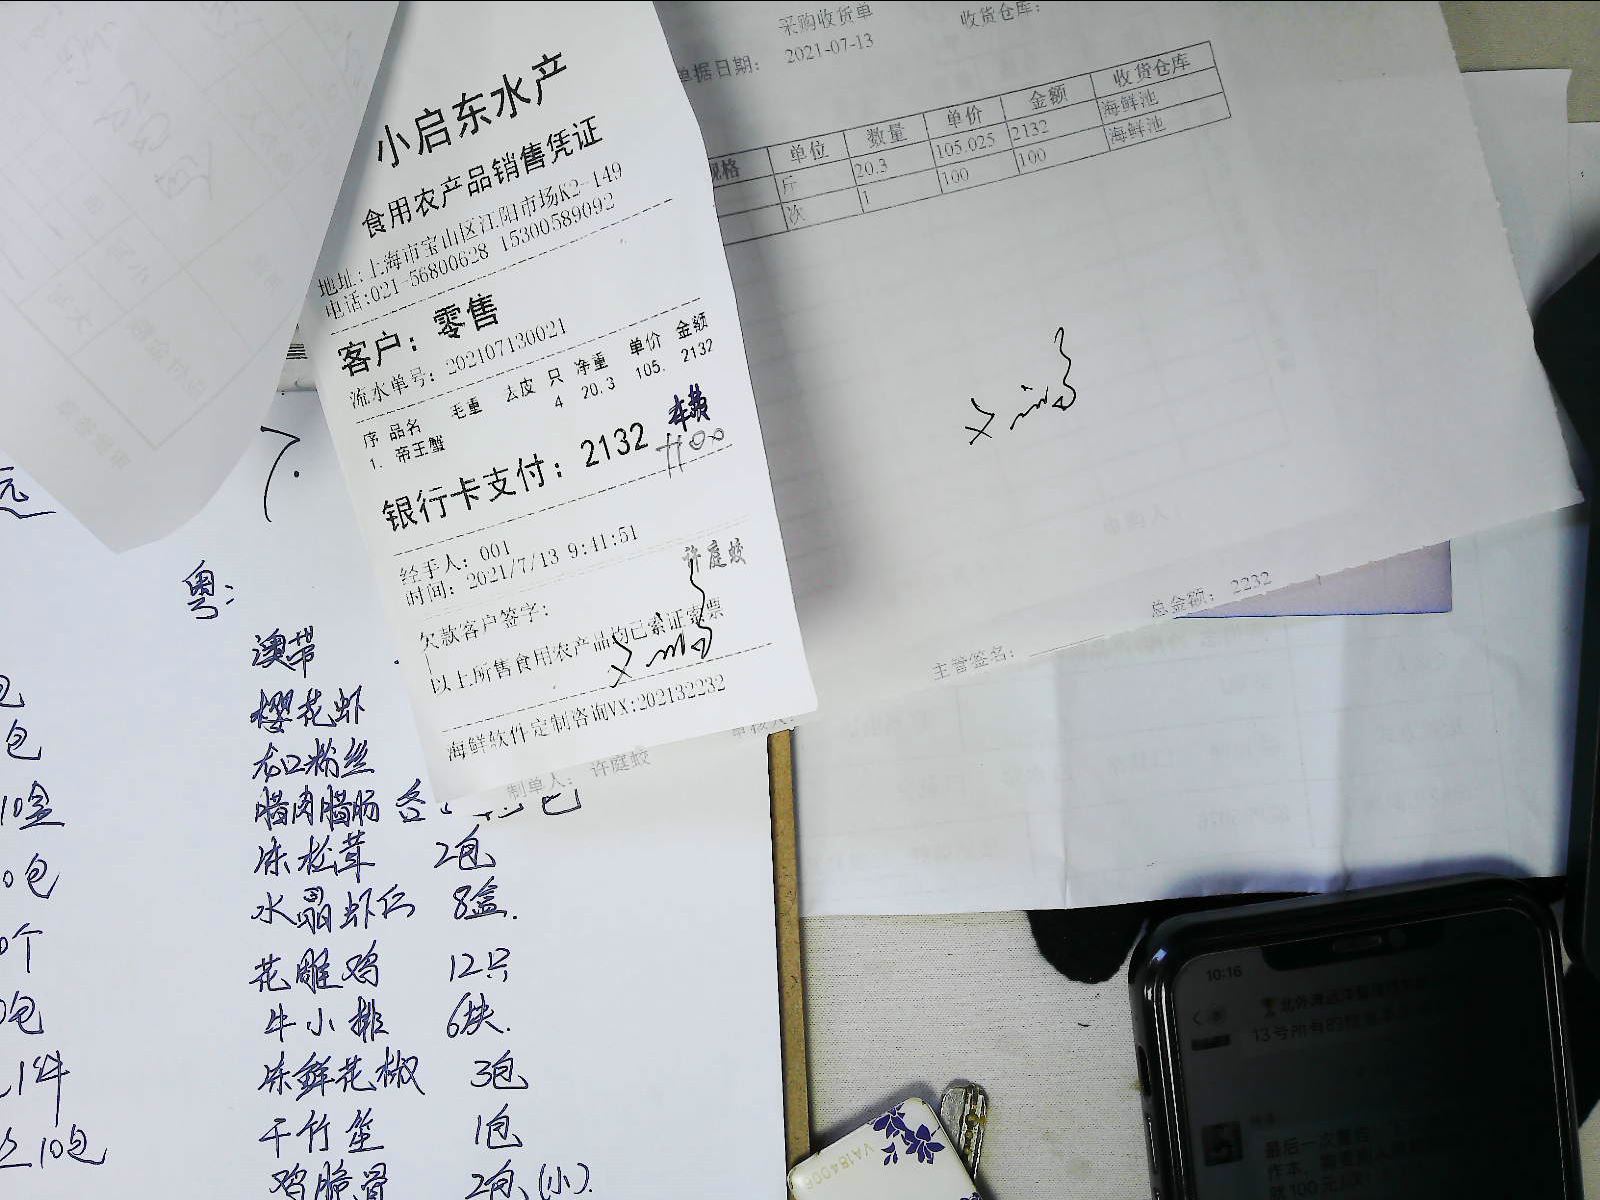 小启东水产
食用农产品销售凭证
地址:上海市宝山区江阳市场K2-149
电话:021-56800628 15300589092
客户: 零售
流水单号: 202107130021
序 品名 毛重 去皮 只 净重 单价 金额
1. 帝王蟹 4 20.3 105. 2132
银行卡支付: 2132
车费
100
经手人: 001
时间: 2021/7/13 9:41:51
许庭蛟
欠款客户签字:
以上所售食用农产品均已索证索票
海鲜软件定制咨询VX:202132232
采购收货单
收货仓库:
单据日期: 2021-07-13
规格 单位 数量 单价 金额 收货仓库
斤 20.3 105.025 2132 海鲜池
次 1 100 100 海鲜池
总金额: 2232
主管签名:
审核人:
制单人: 许庭蛟
元
包
包
10盒
0包
0个
0包
1件
10包
粤:
澳带
樱花虾
龙口粉丝
腊肉腊肠 各 包
冻松茸 2包
水晶虾仁 8盒.
花雕鸡 12只
牛小排 6块.
冻鲜花椒 3包
干竹笙 1包
鸡脆骨 2包(小).
10:16
13号所有的
最后一次
作本,
就100元